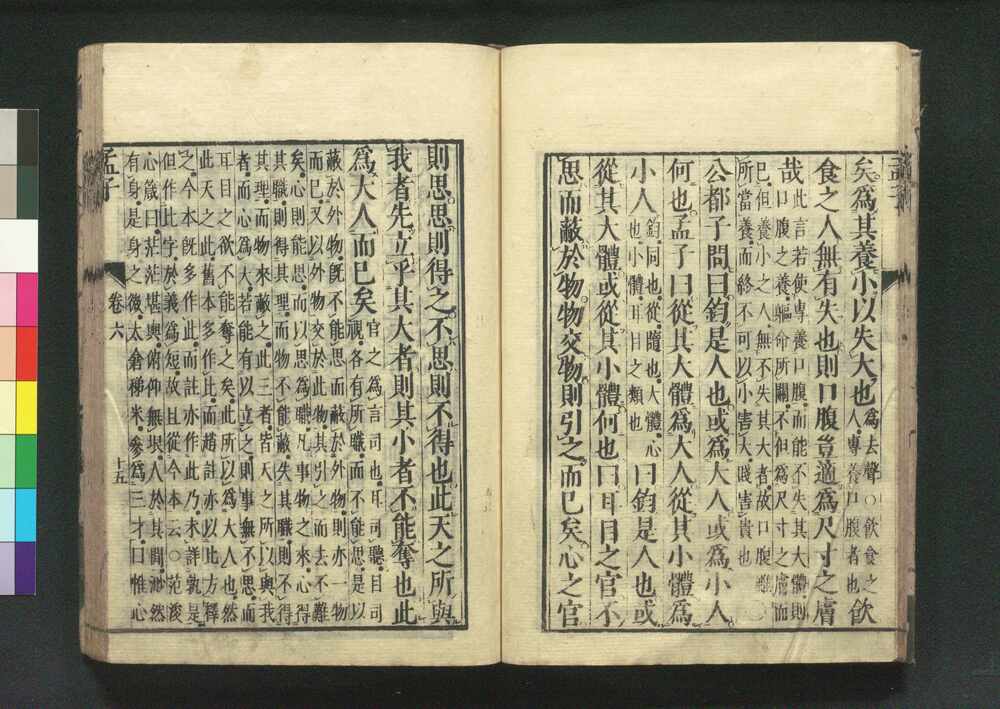 矣爲其養小以失大也
爲去聲○飮食之
人專養口腹者也
飮
食之人無有失也則口腹豈適爲尺寸之膚
哉
此言若使專養口腹而能不失其大體則
口腹之養軀命所關不但爲尺寸之膚而
已但養小之人無不失其大者故口腹雖○
所當養而終不可以小害大賤害貴也
公都子問曰鈞是人也或爲大人或爲小人
何也孟子曰從其大體爲大人從其小體爲
小人
鈞同也從隨也大體心
也小體耳目之類也
曰鈞是人也或
從其大體或從其小體何也曰耳目之官不
思而蔽於物物交物則引之而已矣心之官
則思思則得之不思則不得也此天之所與
我者先立乎其大者則其小者不能奪也此
爲大人而已矣
官之爲言司也耳司聽目司
視各有所職而不能思是以
蔽於外物旣不能思而蔽於外物則亦一物
而已又以外物交於此物其引之而去不難
矣心則能思而以思爲職凡事物之來心得
其職則得其理而物不能蔽失其職則不得
其理而物來蔽之此三者皆天之所以與我
者而心爲大若能有以立之則事無不思而
耳目之欲不能奪之矣此所以爲大人也然
此天之此舊本多作比而趙註亦以比方釋
之今本旣多作此而註亦作此乃未詳孰是
但作比字於義爲短故且從今本云○范浚
心箴曰茫茫堪輿俯仰無垠人於其間渺然
有身是身之微太倉稊米參爲三才曰惟心
孟子
卷六
十五